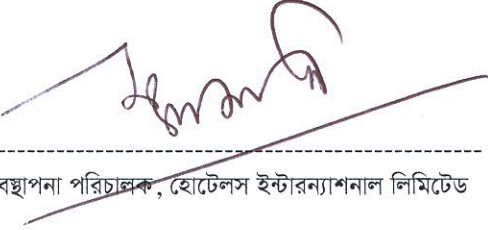 বস্থাপনা পরিচালক, হোটেলস ইন্টারন্যাশনাল লিমিটেড